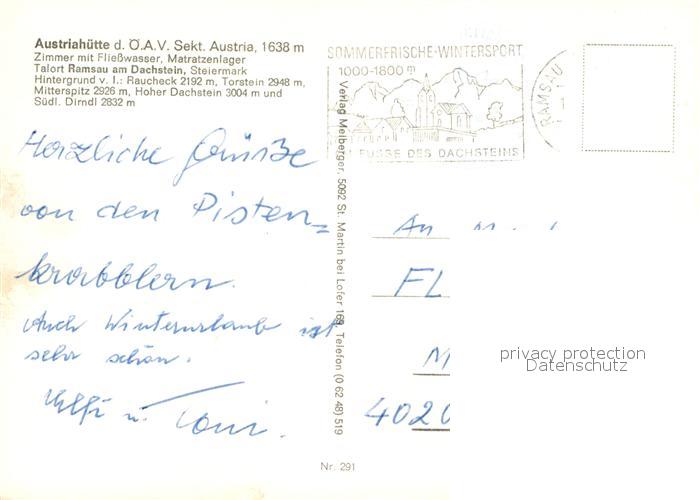 Austriahütte d. Ö.A.V. Sekt. Austria, 1638 m
Zimmer mit Fließwasser, Matratzenlager
Talort Ramsau am Dachstein, Steiermark
Hintergrund v. l.: Raucheck 2192 m, Torstein 2948 m,
Mitterspitz 2926 m, Hoher Dachstein 3004 m und
Südl. Dirndl 2832 m
SOMMERFRISCHE-WINTERSPORT
1000-1800 m
FUSSE DES DACHSTEINS
RAMSAU
Herzliche Grüße
von den Pisten=
krabblern.
Auch Winterurlaub ist
sehr schön.
u. Toni.
Verlag Meiberger, 5092 St. Martin bei Lofer 169, Telefon (0 62 48) 519
An
FL
M
4020
privacy protection
Datenschutz
Nr. 291